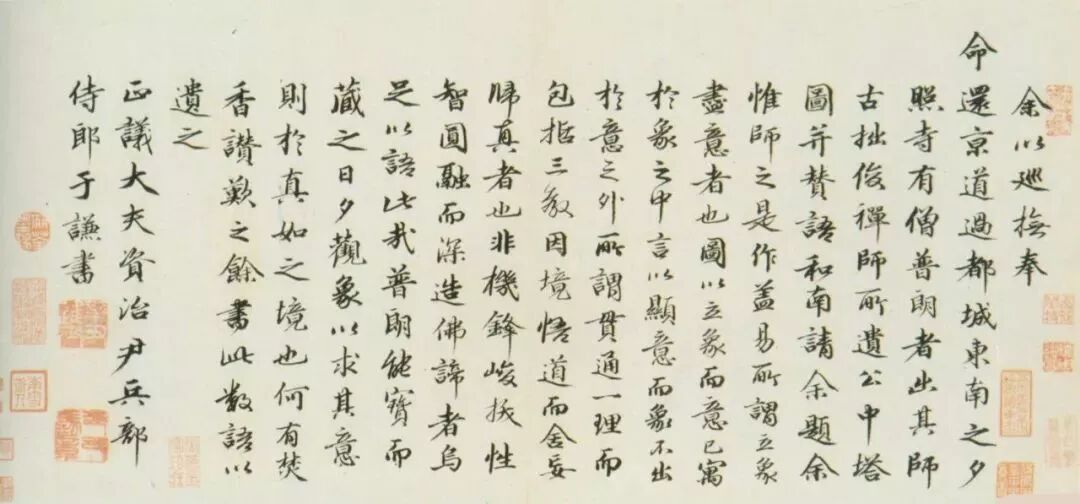 余以廵撫奉
命還京道過都城東南之夕
照寺有僧普朗者出其師
古拙俊禪師所遺公中塔
圖并賛語和南請余題余
惟師之是作盖易所謂立象
盡意者也圖以立象而意已寓
於象之中言以顯意而象不出
於意之外所謂貫通一理而
包括三教因境悟道而舍妄
歸真者也非機鋒峻拔性
智圓融而深造佛諦者烏
足以語此哉普朗能寳而
藏之日夕觀象以求其意
則於真如之境也何有焚
香讃歎之餘書此數語以
遺之
正議大夫資治尹兵部
侍郎于謙書